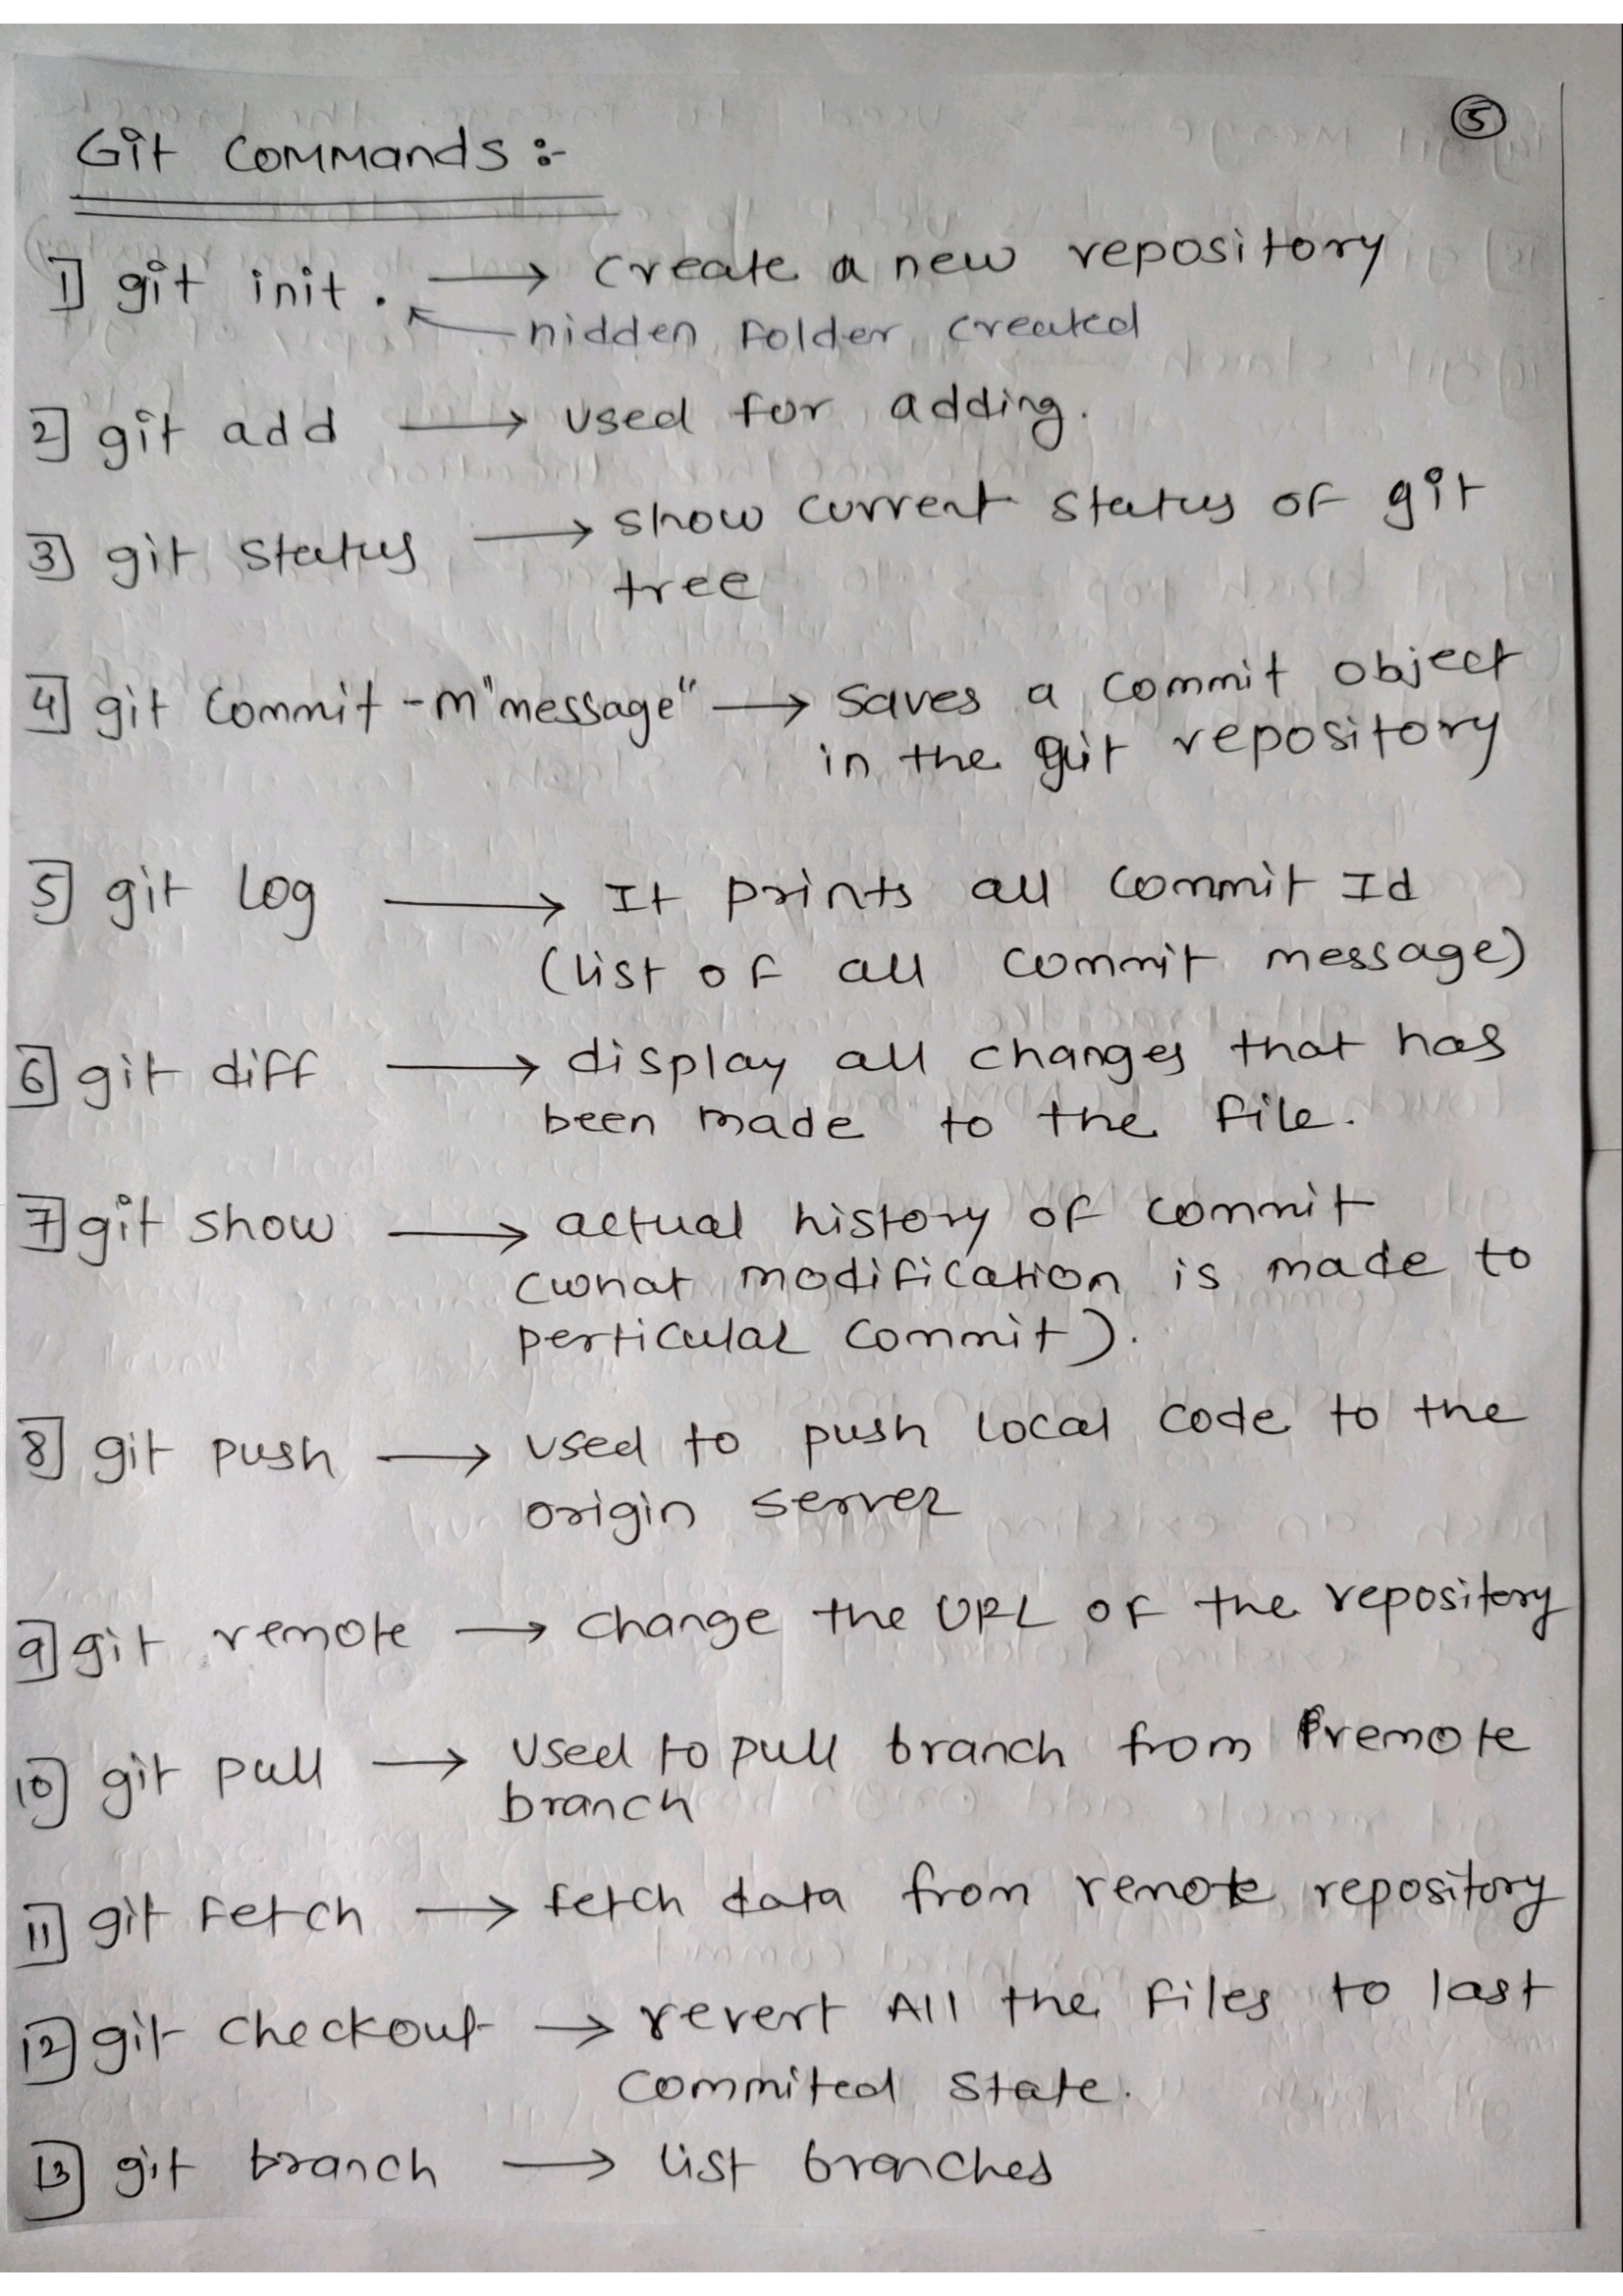 5
Git Commands :-
1] git init . → Create a new repository
hidden folder created
2] git add → used for adding.
3] git status → show current status of git
tree
4] git commit -m"message" → saves a commit object
in the git repository
5] git log → It prints all commit Id
(list of all commit message)
6] git diff → display all changes that has
been made to the file.
7] git show → actual history of commit
(what modification is made to
perticular commit).
8] git push → used to push local code to the
origin server
9] git remote → change the URL of the repository
10] git pull → used to pull branch from remote
branch
11] git fetch → fetch data from remote repository
12] git checkout → revert All the files to last
commited state.
13] git branch → list branches